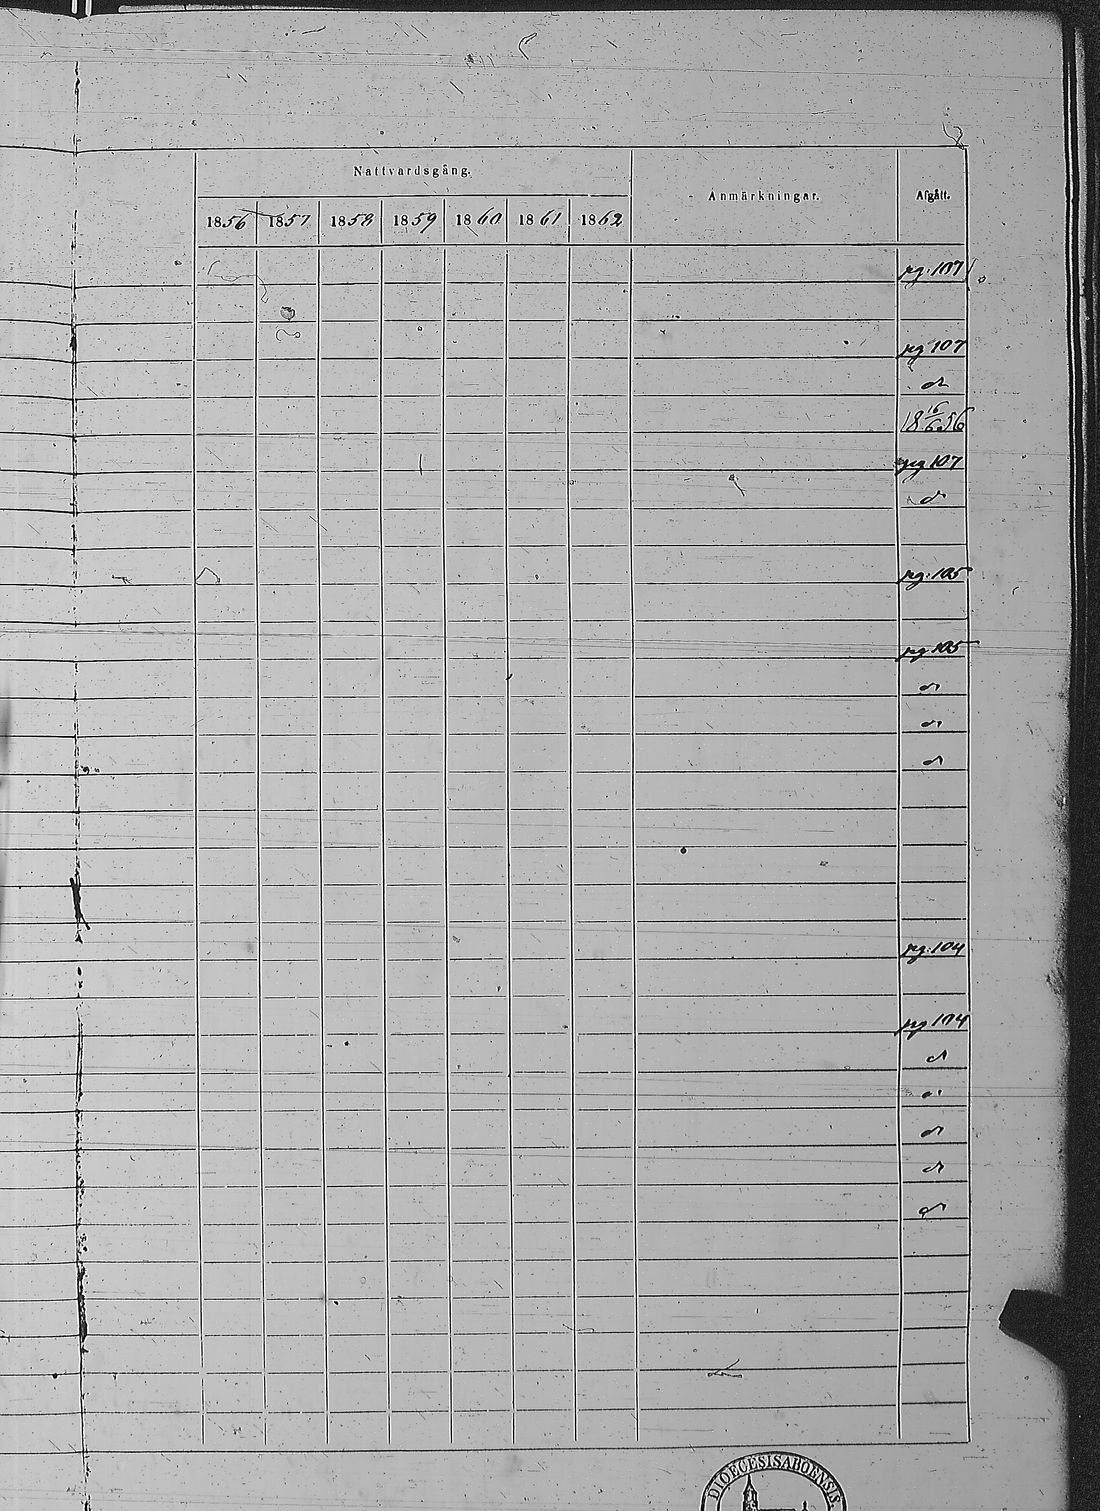 Nattvardsgång. Anmärkningar. Afgått.
1856 1857 1858 1859 1860 1861 1862
pg. 107
pg 107
d
18 16/6 56
pg 107
d
pg. 105
pg 105
d
d
d
pg. 104
pg 104
d
d
d
d
d
DIOECESIS ABOENSIS